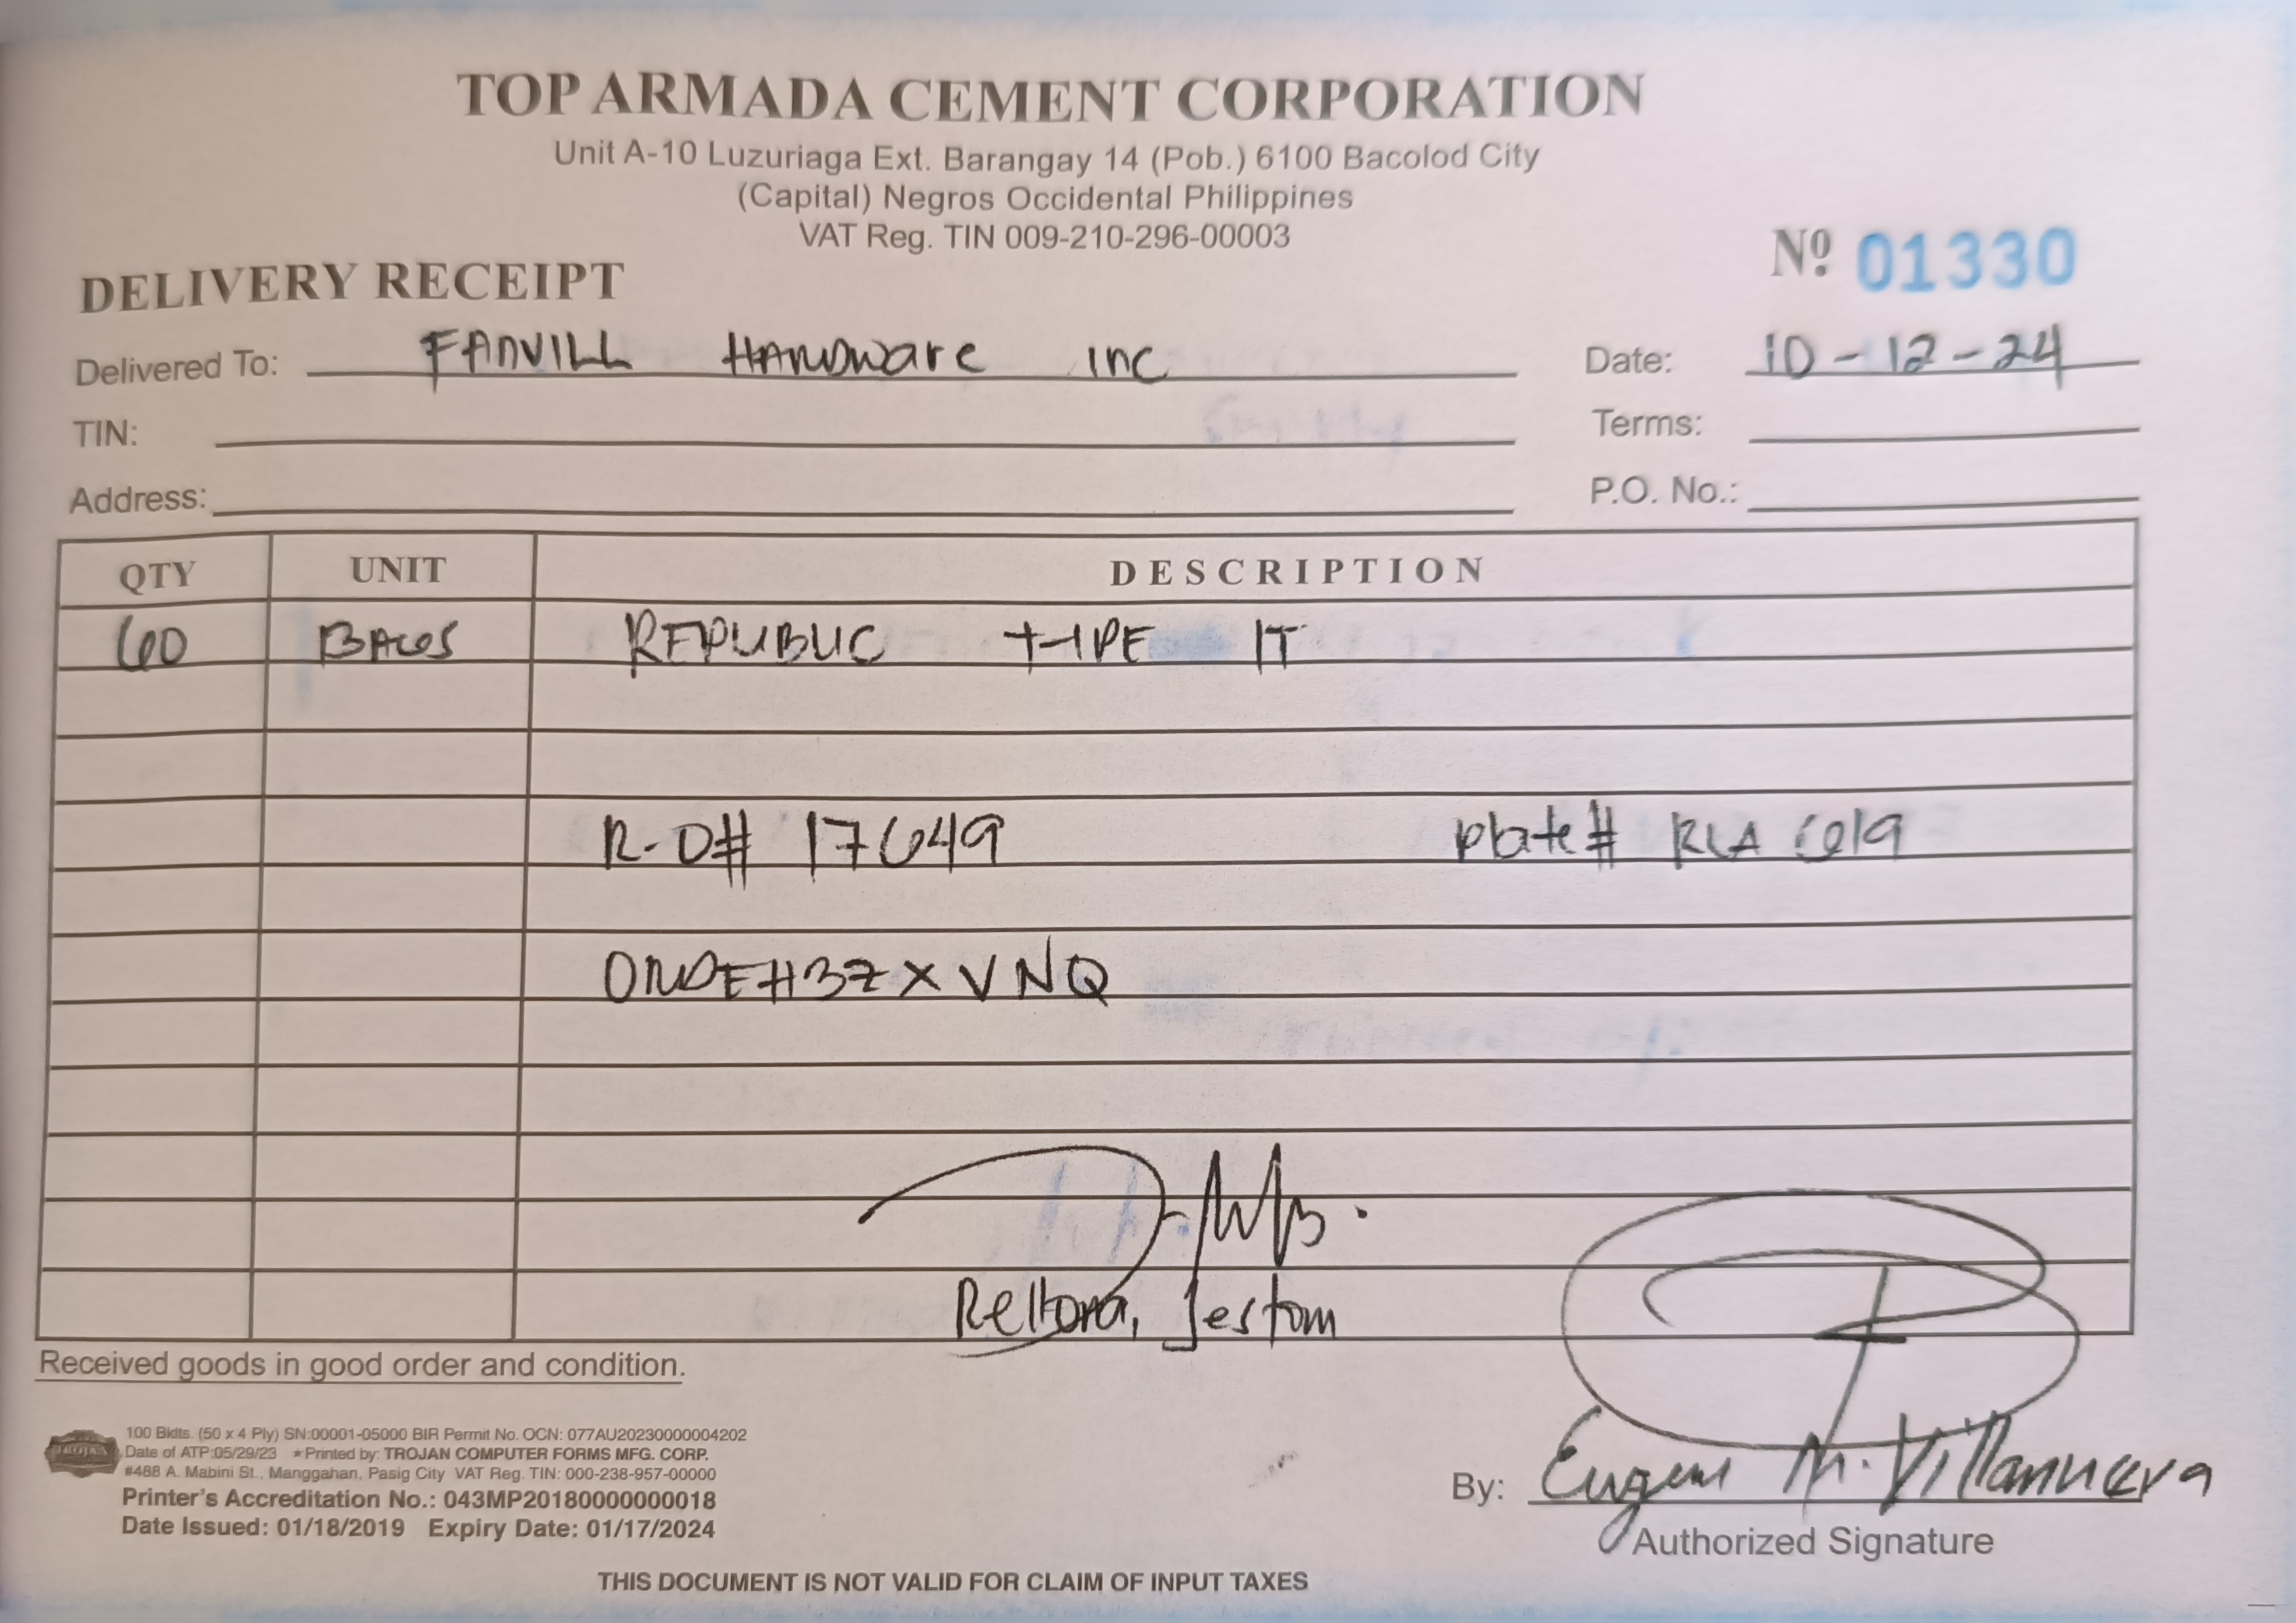 TOP ARMADA CEMENT CORPORATION
Unit A-10 Luzuriaga Ext. Barangay 14 (Pob.) 6100 Bacolod City
(Capital) Negros Occidental Philippines
VAT Reg. TIN 009-210-296-00003
DELIVERY RECEIPT
Nº 01330
Delivered To: FANVILL HARDWARE INC
Date: 10-12-24
TIN:
Terms:
Address:
P.O. No.:
QTY UNIT DESCRIPTION
60 BAGS REPUBLIC TYPE IT
R-O# 17649 plate# RLA 6019
3ZXVNQ
Jestom
Received goods in good order and condition.
100 Bklts. (50 x 4 Ply) SN:00001-05000 BIR Permit No. OCN: 077AU20230000004202
TROJAN
Date of ATP:05/29/23 ★Printed by: TROJAN COMPUTER FORMS MFG. CORP.
#488 A. Mabini St., Manggahan, Pasig City VAT Reg. TIN: 000-238-957-00000
Printer's Accreditation No.: 043MP20180000000018
Date Issued: 01/18/2019 Expiry Date: 01/17/2024
By: Eugene M. Villanueva
Authorized Signature
THIS DOCUMENT IS NOT VALID FOR CLAIM OF INPUT TAXES